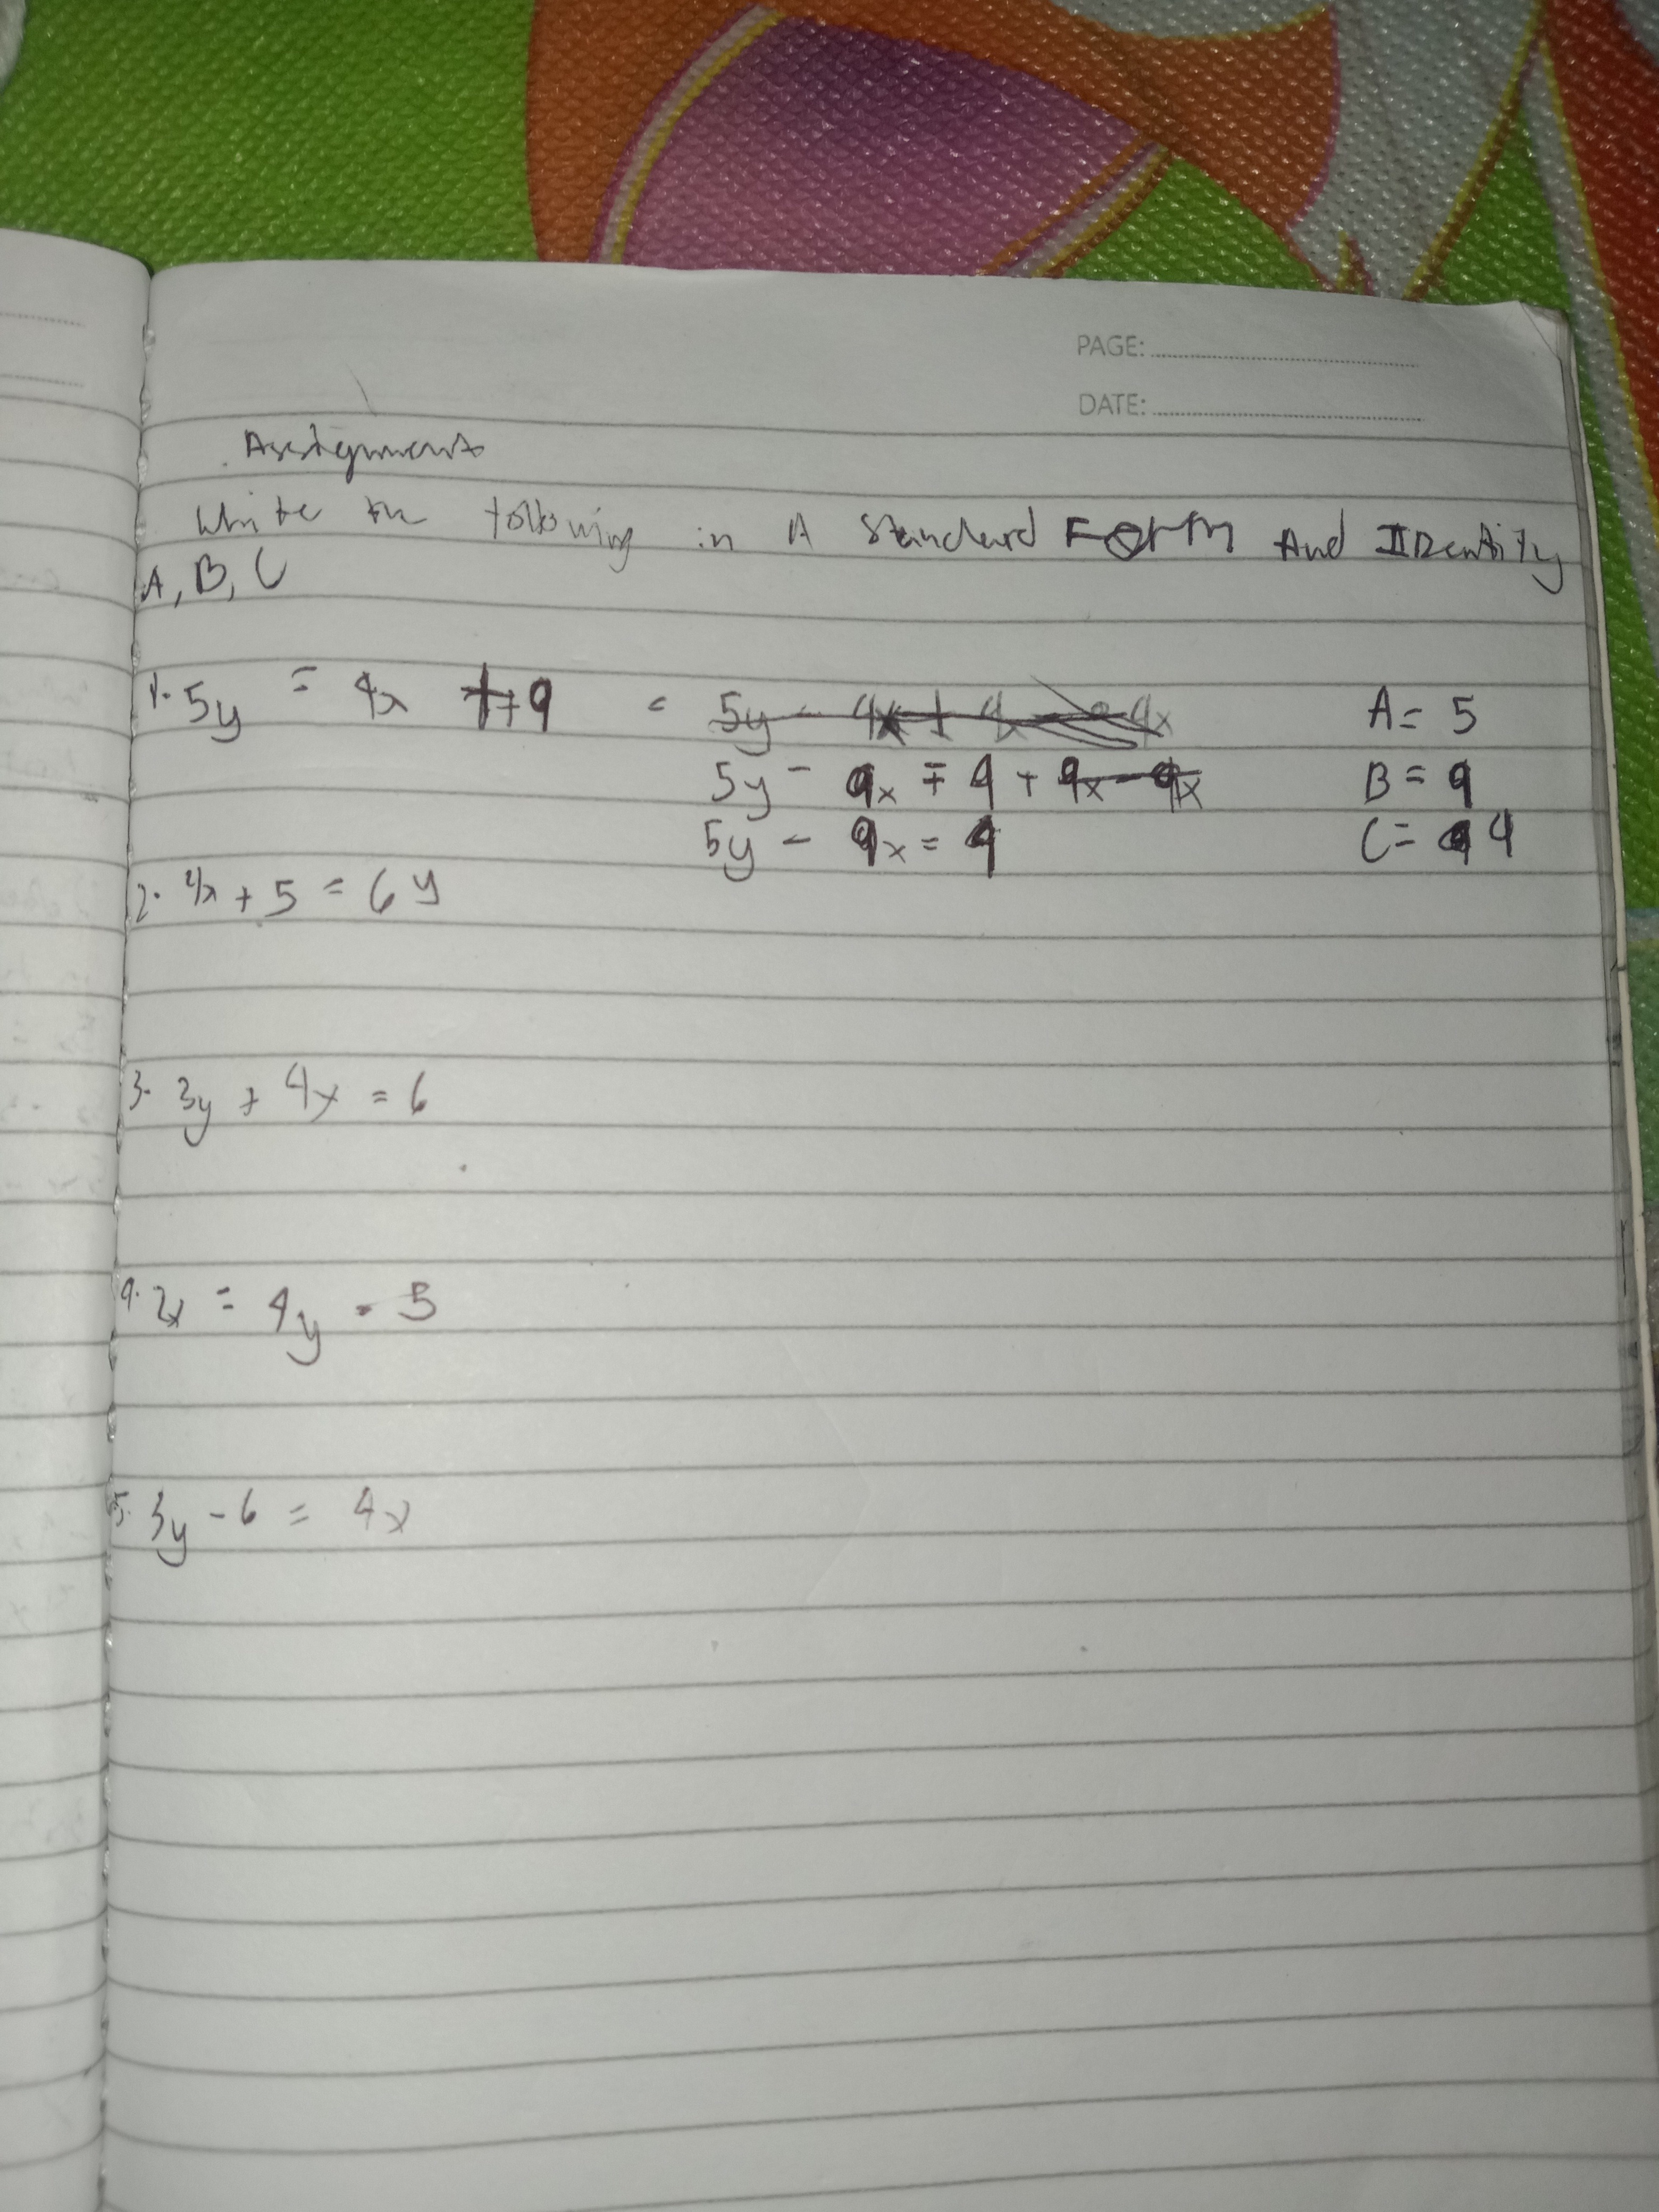 PAGE:
DATE:
Assignment
Write the following in A Standard Form And IDentity
A, B, C
1. 5y = 4x + 9 = 5y - 4x A = 5
5y - 9x = 9 + 9x - 9x B = 9
5y - 9x = 9 C = 4
2. 4x + 5 = 6y
3. 3y + 4x = 6
4. 2x = 4y - 5
5. 3y - 6 = 4x